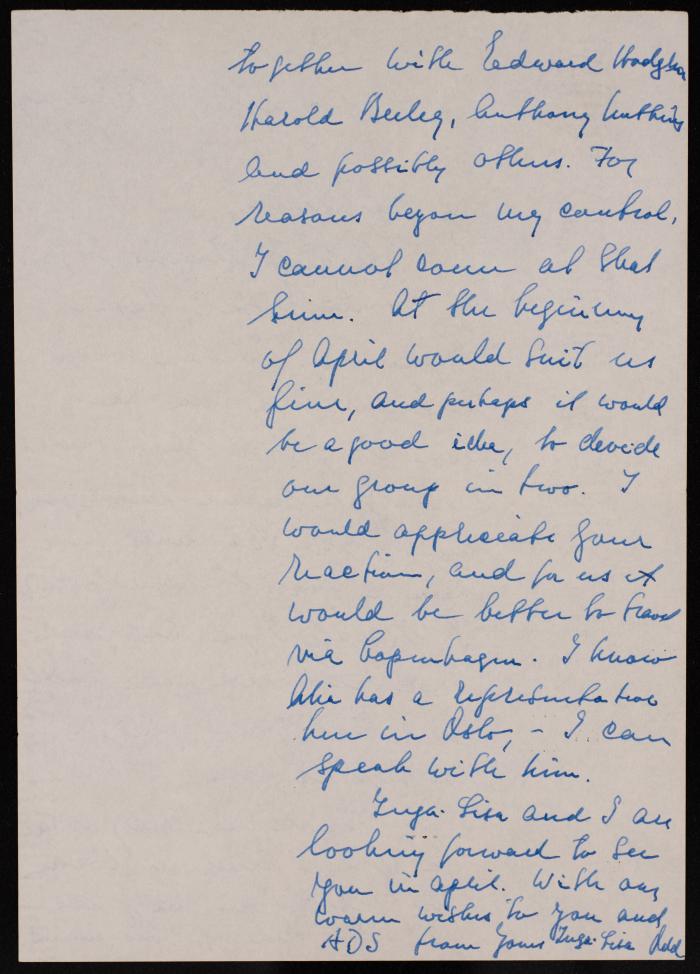 together with Edward Hodgkin
Harold Beeley, Anthony Nutting
and possibly others. For
reasons beyon my control,
I cannot come at that
time. At the beginning
of April would suit us
fine, and perhaps it would
be a good idea, to devide
our group in two. I
would appreciate your
reaction, and for us it
would be better to travel
via Copenhagen. I know
Alia has a representative
here in Oslo, - I can
speak with him.
Inga-Lisa and I are
looking forward to see
you in april. With our
warm wishes to you and
ADS from yours Inga-Lisa Odd